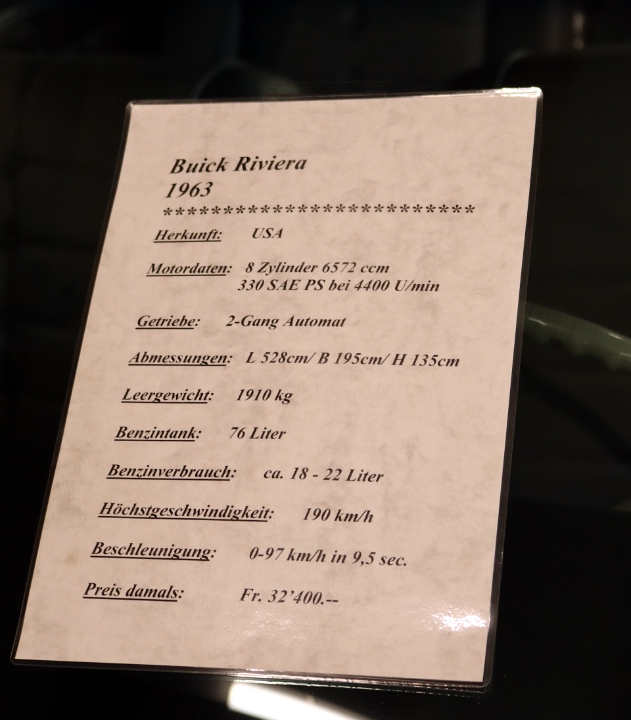 Buick Riviera
1963
**************************
Herkunft: USA
Motordaten: 8 Zylinder 6572 ccm
330 SAE PS bei 4400 U/min
Getriebe: 2-Gang Automat
Abmessungen: L 528cm/ B 195cm/ H 135cm
Leergewicht: 1910 kg
Benzintank: 76 Liter
Benzinverbrauch: ca. 18 - 22 Liter
Höchstgeschwindigkeit: 190 km/h
Beschleunigung: 0-97 km/h in 9,5 sec.
Preis damals: Fr. 32'400.--